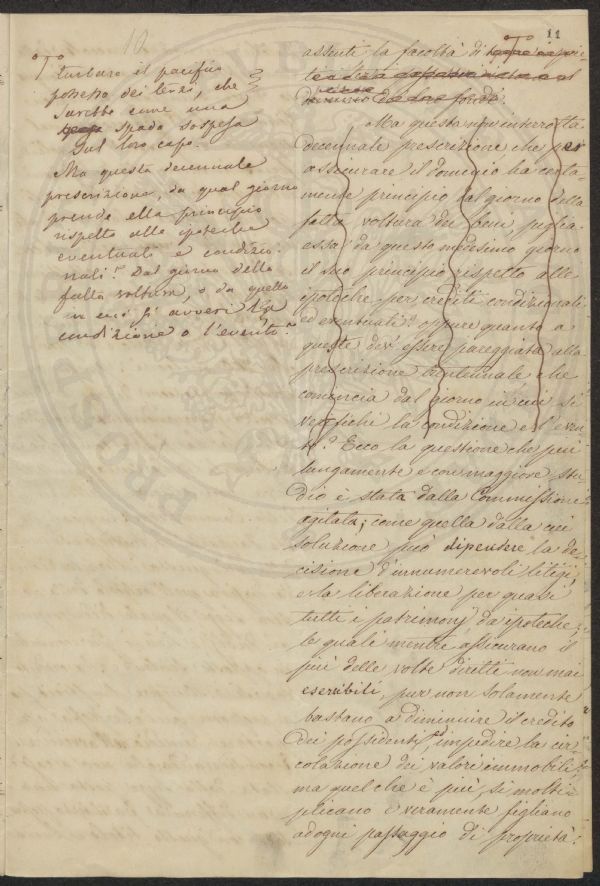 10
11
turbare il pacifico
possesso dei terzi, che
sarebbe come una
spada sospesa
sul loro capo.
Ma questa decennale
prescrizione, da qual giorno
prende ella principio
rispetto alle ipoteche
eventuali e condizio-
nali? Dal giorno della
fatta voltura, o da quello
in cui si avveri la
condizione o l'evento?
assenti la facoltà di
Ma questa non interrotta
decennale prescrizione che per
assicurare il dominio ha certa-
mente principio dal giorno della
fatta voltura dei beni, piglia
essa da questo medesimo giorno
il suo principio rispetto alle
ipoteche per crediti condizionali
ed eventuali? oppure quanto a
queste dev'essere pareggiata alla
prescrizione trentennale, che
comincia dal giorno in cui si
verifichi la condizione e l'even-
to? Ecco la questione che più
lungamente e con maggiore stu-
dio è stata dalla Commissione
agitata; come quella dalla cui
soluzione può dipendere la de-
cisione d'innumerevoli litigi,
e la liberazione per quasi
tutti i patrimonj da ipoteche,
le quali mentre assicurano il
più delle volte diritti non mai
esercibili, pur non solamente
bastano a diminuire il credito
dei possidenti, ed impedire la cir-
colazione dei valori immobili,
ma quel che è più, si molti-
plicano e veramente figliano
ad ogni passaggio di proprietà: